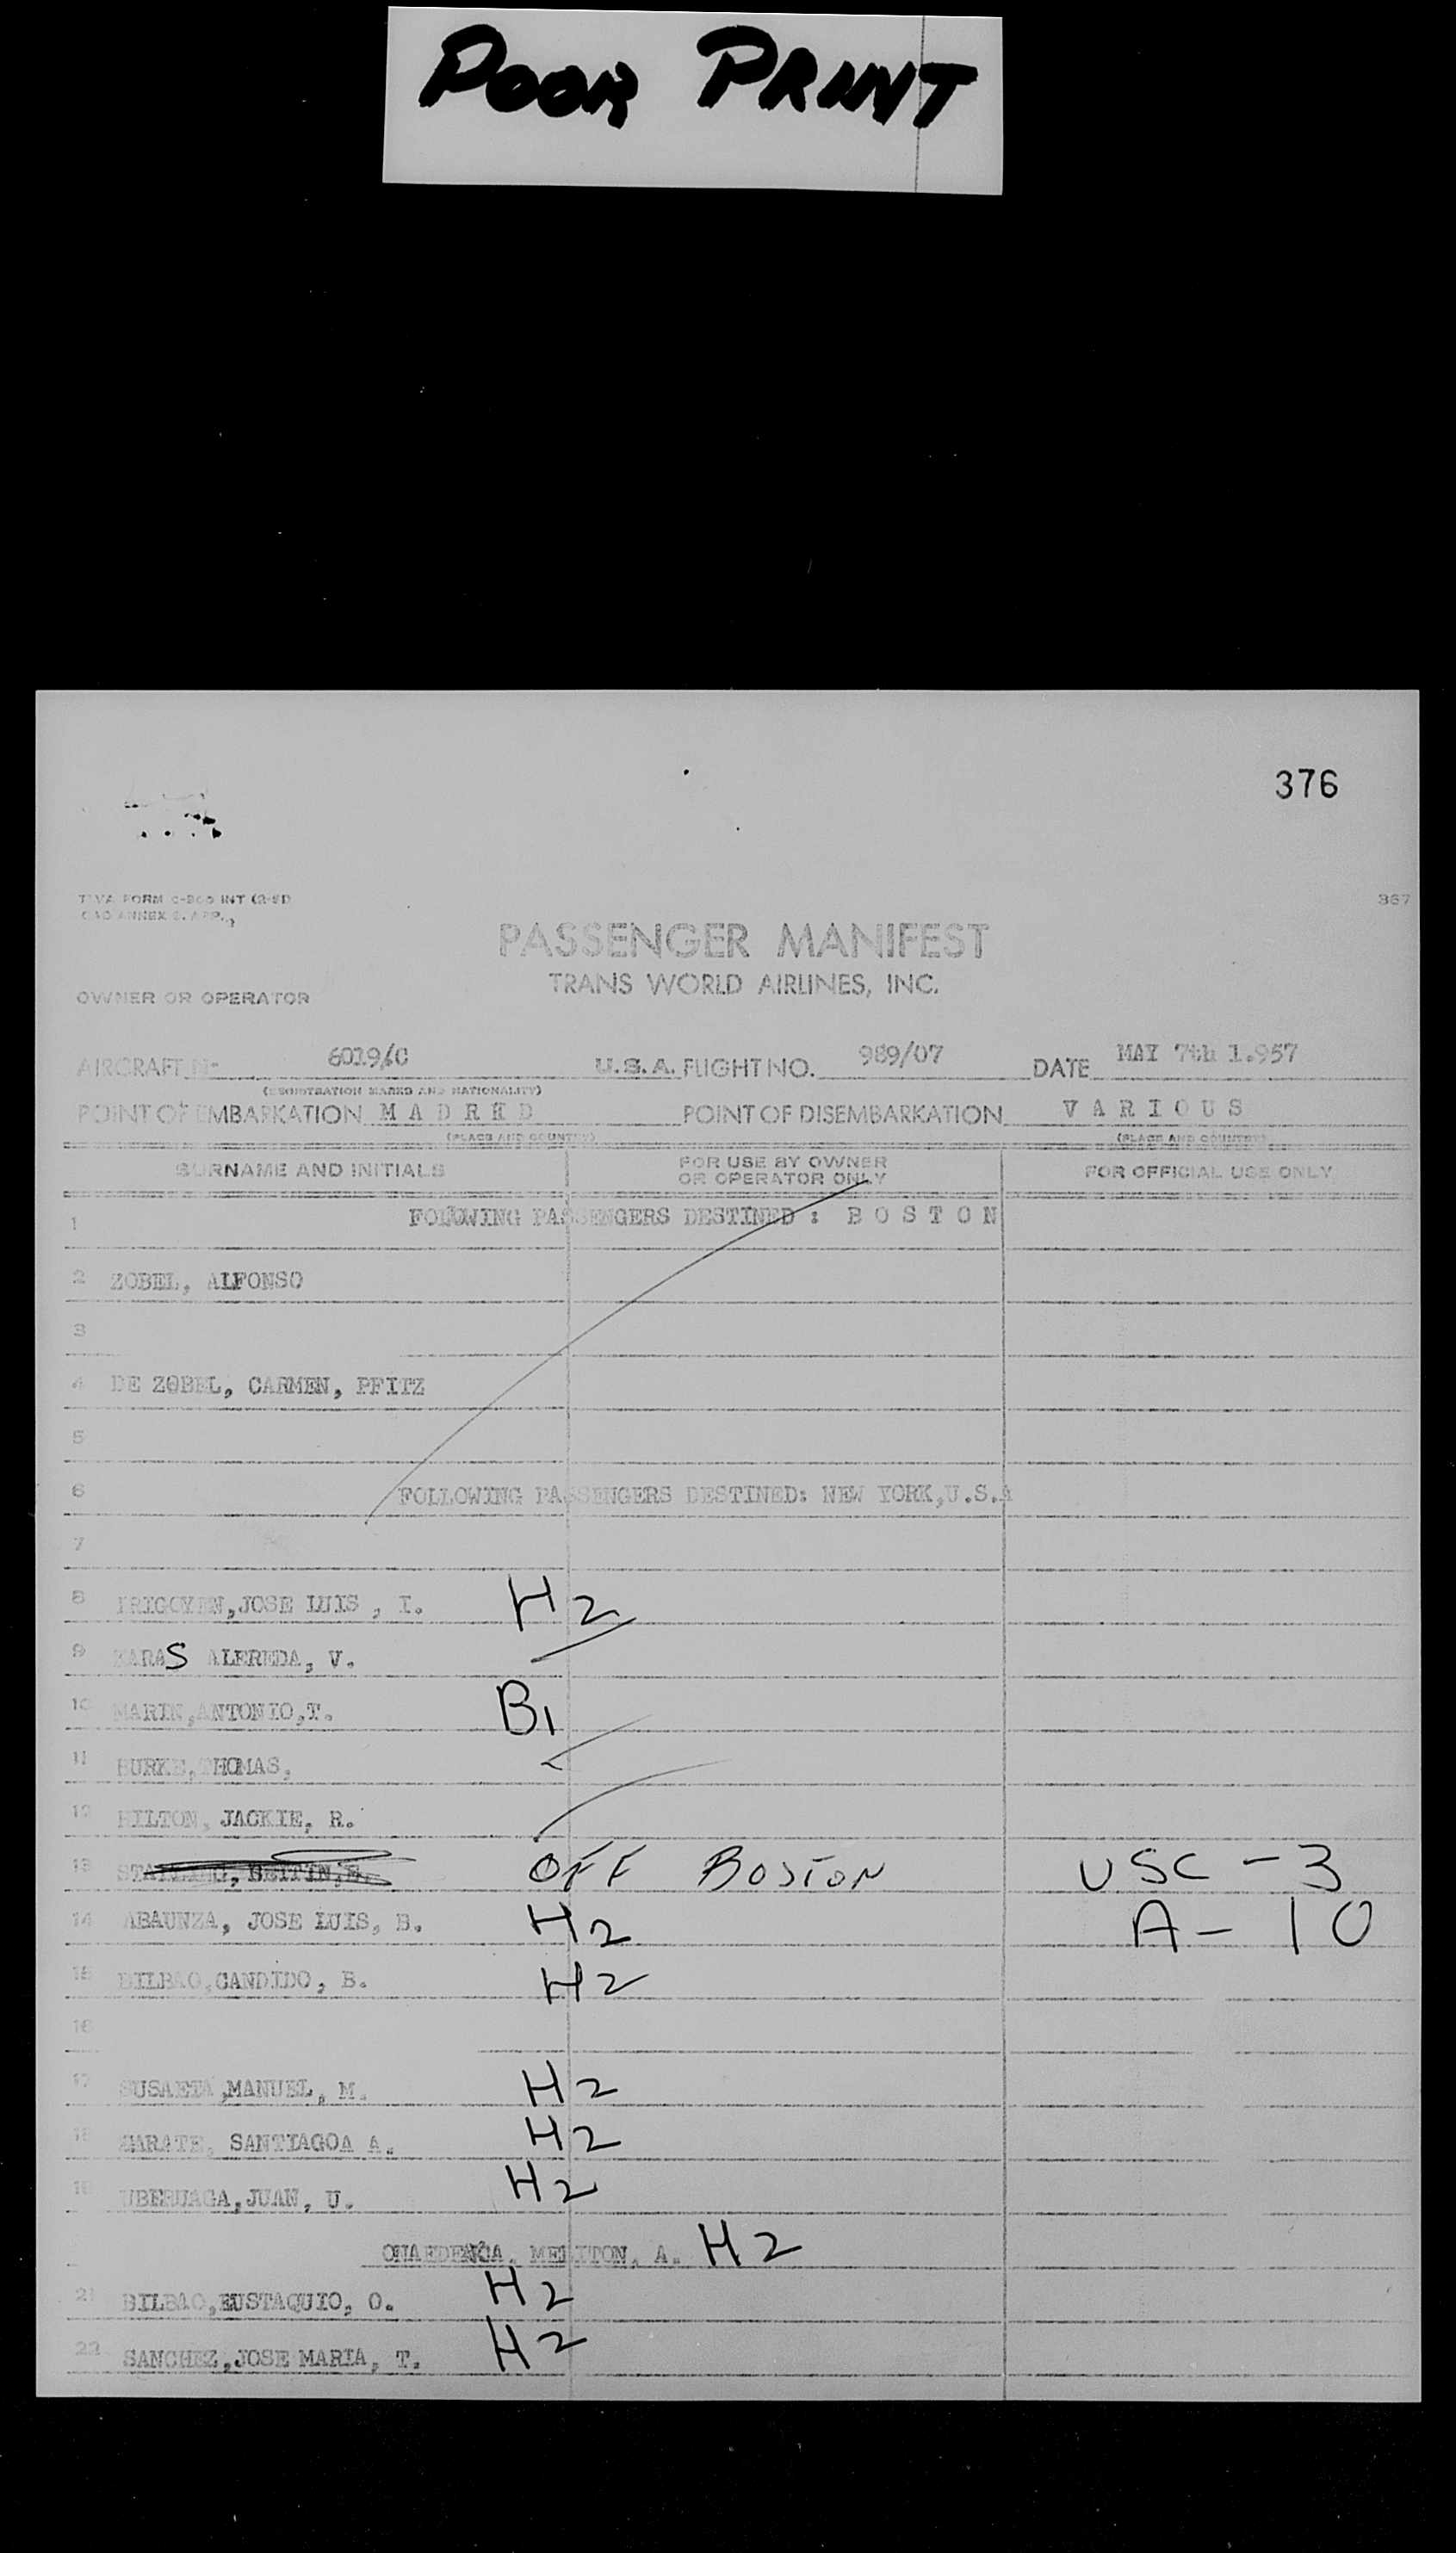 POOR PRINT
376
367
PASSENGER MANIFEST
TRANS WORLD AIRLINES, INC.
OWNER OR OPERATOR
AIRCRAFT N- 6019/C U.S.A. FLIGHT NO. 989/07 DATE MAY 7th 1.957
(REGISTRATION MARKS AND NATIONALITY)
POINT OF EMBARKATION M A D R I D POINT OF DISEMBARKATION V A R I O U S
(PLACE AND COUNTRY) (PLACE AND COUNTRY)
SURNAME AND INITIALS FOR USE BY OWNER OR OPERATOR ONLY FOR OFFICIAL USE ONLY
1 FOLOWING PASSENGERS DESTINED : B O S T O N
2 ZOBEL, ALFONSO
3
4 DE ZOBEL, CARMEN, PFITZ
5
6 FOLLOWING PASSENGERS DESTINED: NEW YORK,U.S.A
7
8 IRIGOYEN,JOSE LUIS , I. H2
9 KARAS ALFREDA, V.
10 MARIN,ANTONIO,T. B1
11 BURKE,THOMAS,
12 HILTON, JACKIE, R.
13 OFF BOSTON USC - 3
14 ABAUNZA, JOSE LUIS, B. H2 A - 10
15 BILBAO,CANDIDO, B. H2
16
17 SUSAETA,MANUEL, M. H2
18 ZARATE, SANTIAGOA A. H2
19 UBERUAGA,JUAN, U. H2
MELITON, A. H2
21 BILBAO,EUSTAQUIO, O. H2
22 SANCHEZ,JOSE MARIA, T. H2